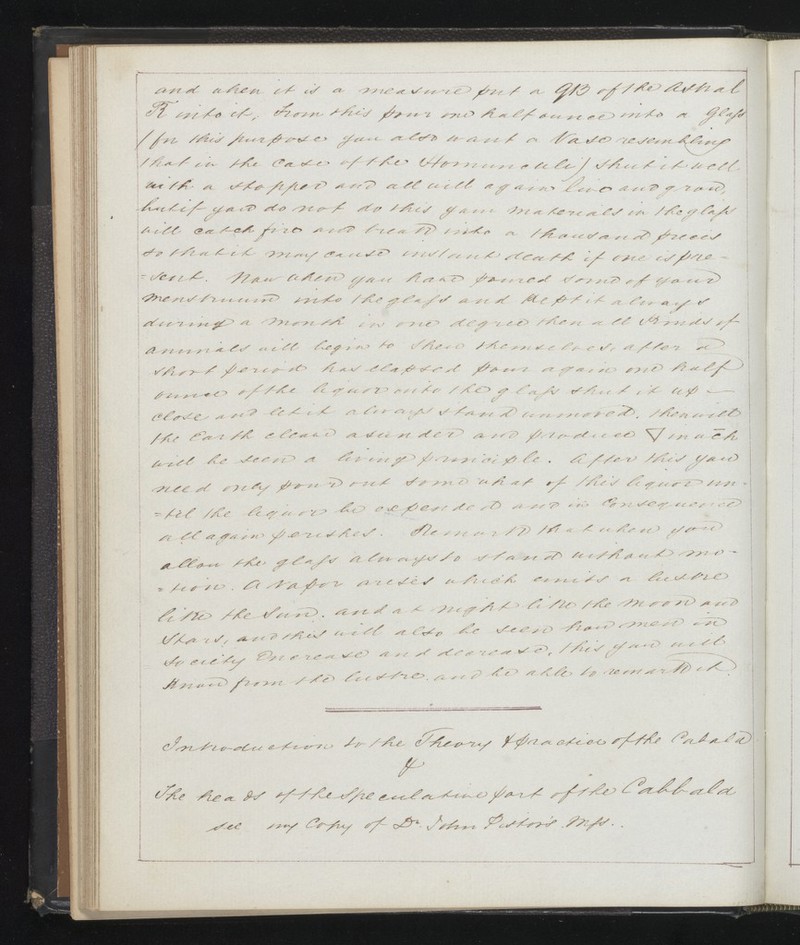 and when it is a measure put a of the Astral
into it, From this pour one half ounce into a Glass
(for this purpose you also want a Vase resembling
that in the case of the Homunculi) shut it well
with a stopper and all will again live and grow,
but if you do not do this your materials in the glass
will catch fire and break into a thousand pieces
so that it may cause instant death if one is pre-
=sent. Now when you have poured some of your
menstruum into the glass and Kept it always
during a month in one degree then all Kinds of
animals will begin to shew themselves, after a
short period has elapsed pour again one half
ounce of the liquor into the glass shut it up –
close and let it always stand unmoved. then will
the Earth cleave asunder and produce 🜄 much
will be seen a living principle. After this you
need only pour out some what of this liquor un-
=til the liquor be expended and in Consequence
all again perishes. Remark that when you
allow the glass always to stand without mo-
=tion. A Vapor arises which emits a lustre
like the Sun. and at night like the moon and
Stars, and this will also be seen how men in
Society Increase and decrease, this you will
Know from the lustre. and be able to remark it.
Introduction to the Theory & practice of the Cabala
&
The heads of the Speculative part of the Cabbala
see my Copy of Dr John Pistor's Mss..